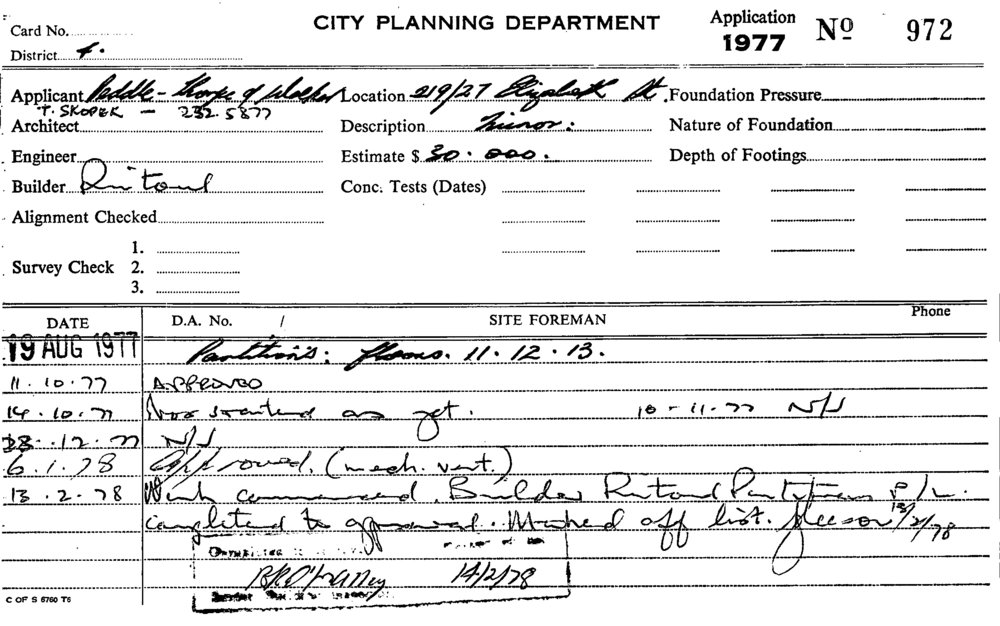 Card No.
CITY PLANNING DEPARTMENT
Application 1977 Nº 972
District 4.
Applicant Peddle - Thorpe & Walker Location 219/27 Elizabeth St. Foundation Pressure
T. SKOPEK - 232.5877
Architect Description Minor: Nature of Foundation
Engineer Estimate $ 30.000. Depth of Footings
Builder Ritoul Conc. Tests (Dates)
Alignment Checked
1.
Survey Check 2.
3.
DATE D.A. No. / SITE FOREMAN Phone
19 AUG 1977 Partitions: floors. 11. 12. 13.
11. 10. 77 APPROVED
14. 10. 77 Not started as yet. 10-11-77 N/S
23. 12. 77 N/S
6. 1. 78 Approved. (mech. vent.)
13. 2. 78 Work commenced. Builder Ritoul Partitions P/L.
completed to approval. Marked off list. 13/2/78
14/2/78
C OF S 5760 T6